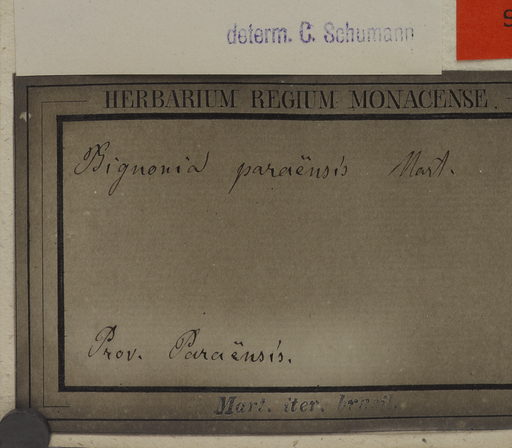 determ. C. Schumann
HERBARIUM REGIUM MONACENSE.
Bignonia paraënsis Mart.
Prov. Paraënsis.
Mart. iter. brasil.